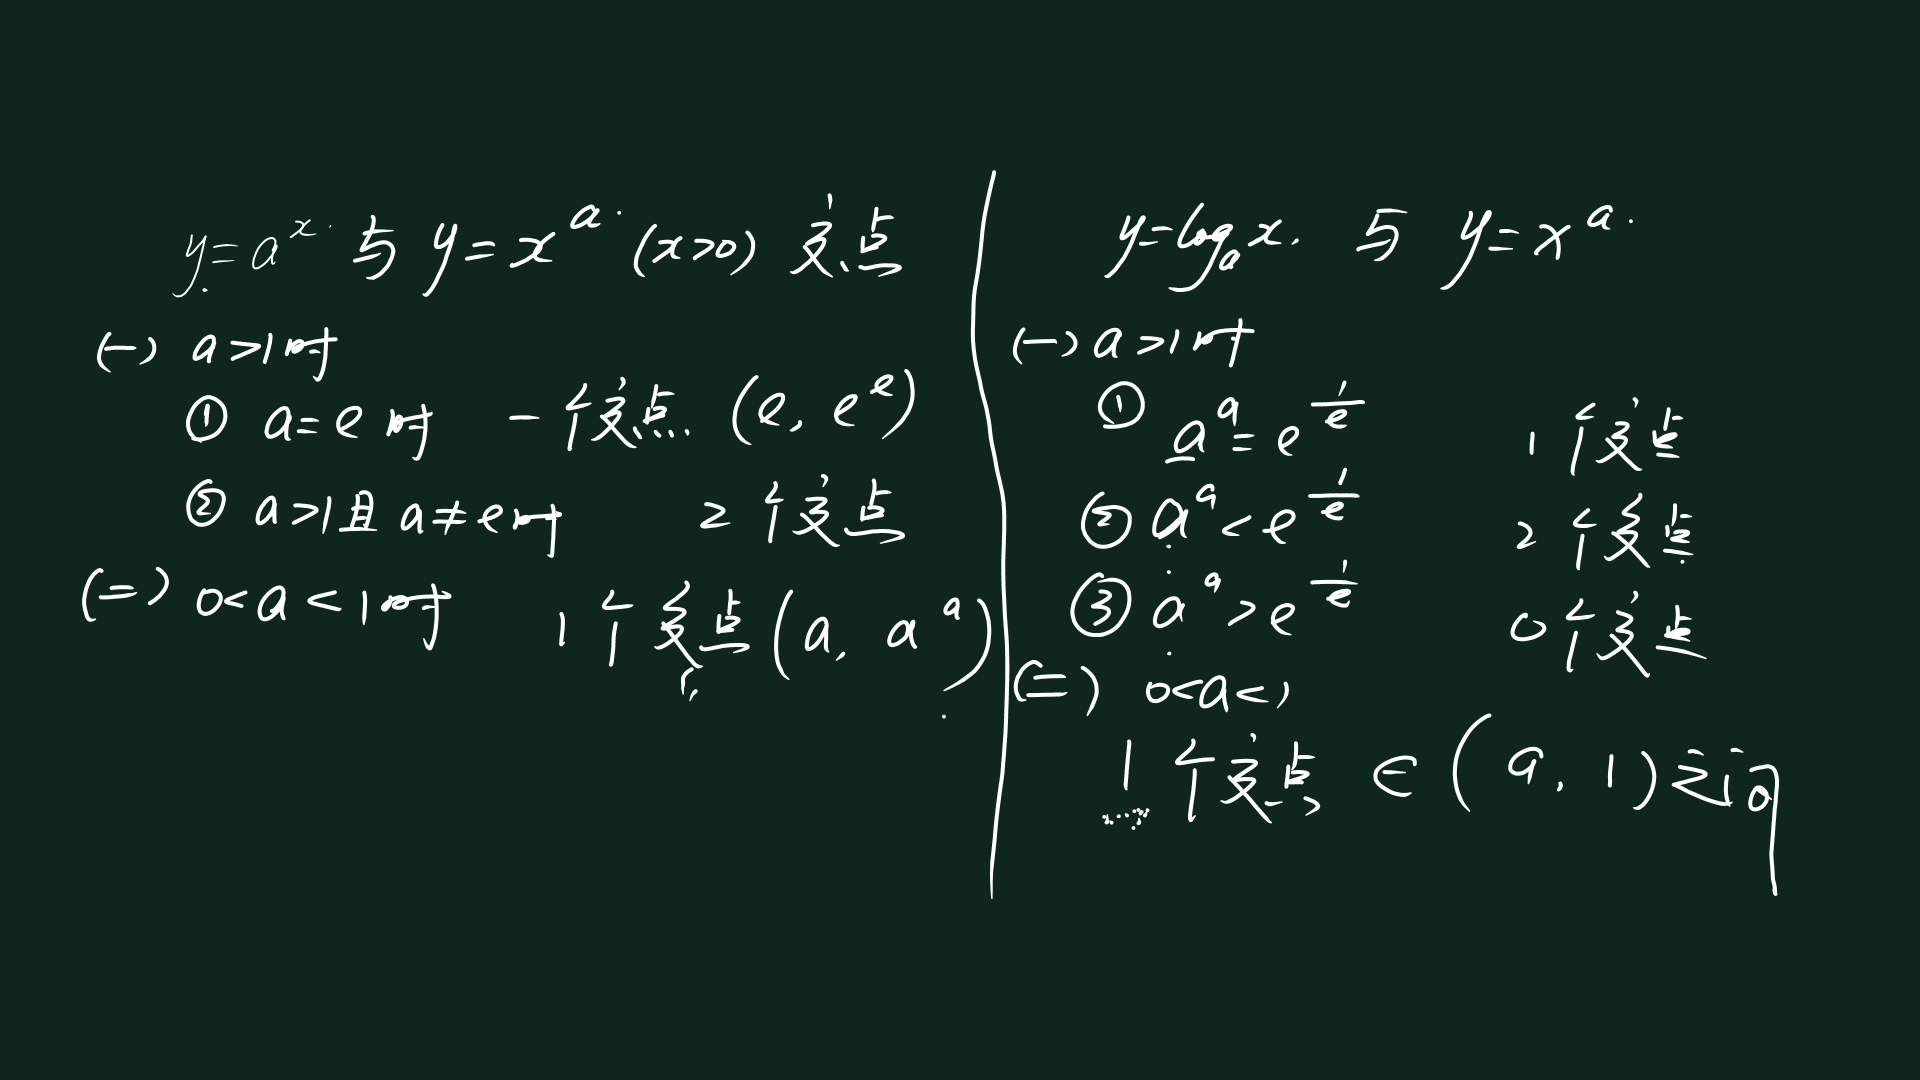 y=a^x 与 y=x^a (x>0) 交点
(一) a>1时
① a=e时 一个交点 (e, e^e)
② a>1且a≠e时 2个交点
(二) 0<a<1时 1个交点 (a, a^a)
y=log_a x. 与 y=x^a.
(一) a>1时
① a^a=e^{1/e} 1个交点
② a^a<e^{1/e} 2个交点
③ a^a>e^{1/e} 0个交点
(二) 0<a<1
1个交点 ∈(a, 1)之间